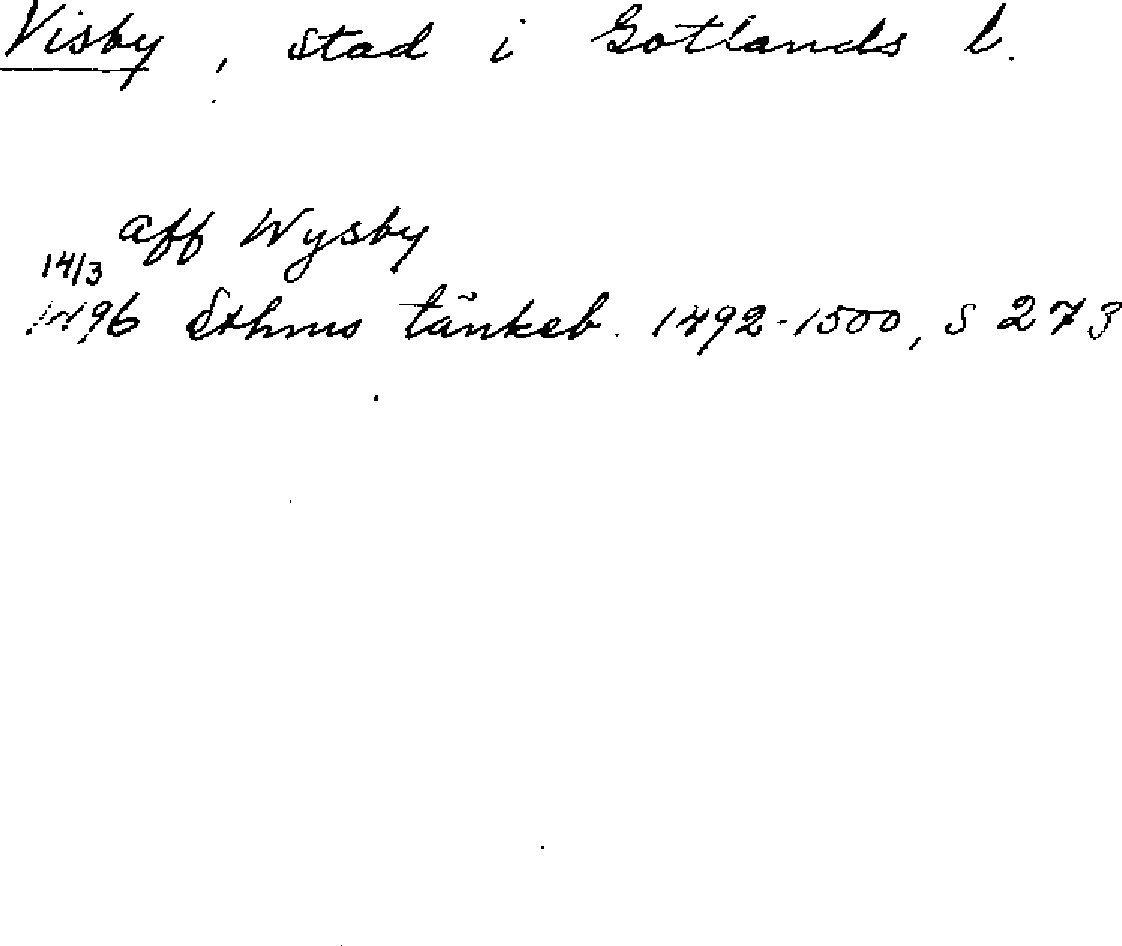 Visby, stad i Gotlands l.
aff Wysby
14/3
1496 Sthms tänkeb. 1492-1500, s 273